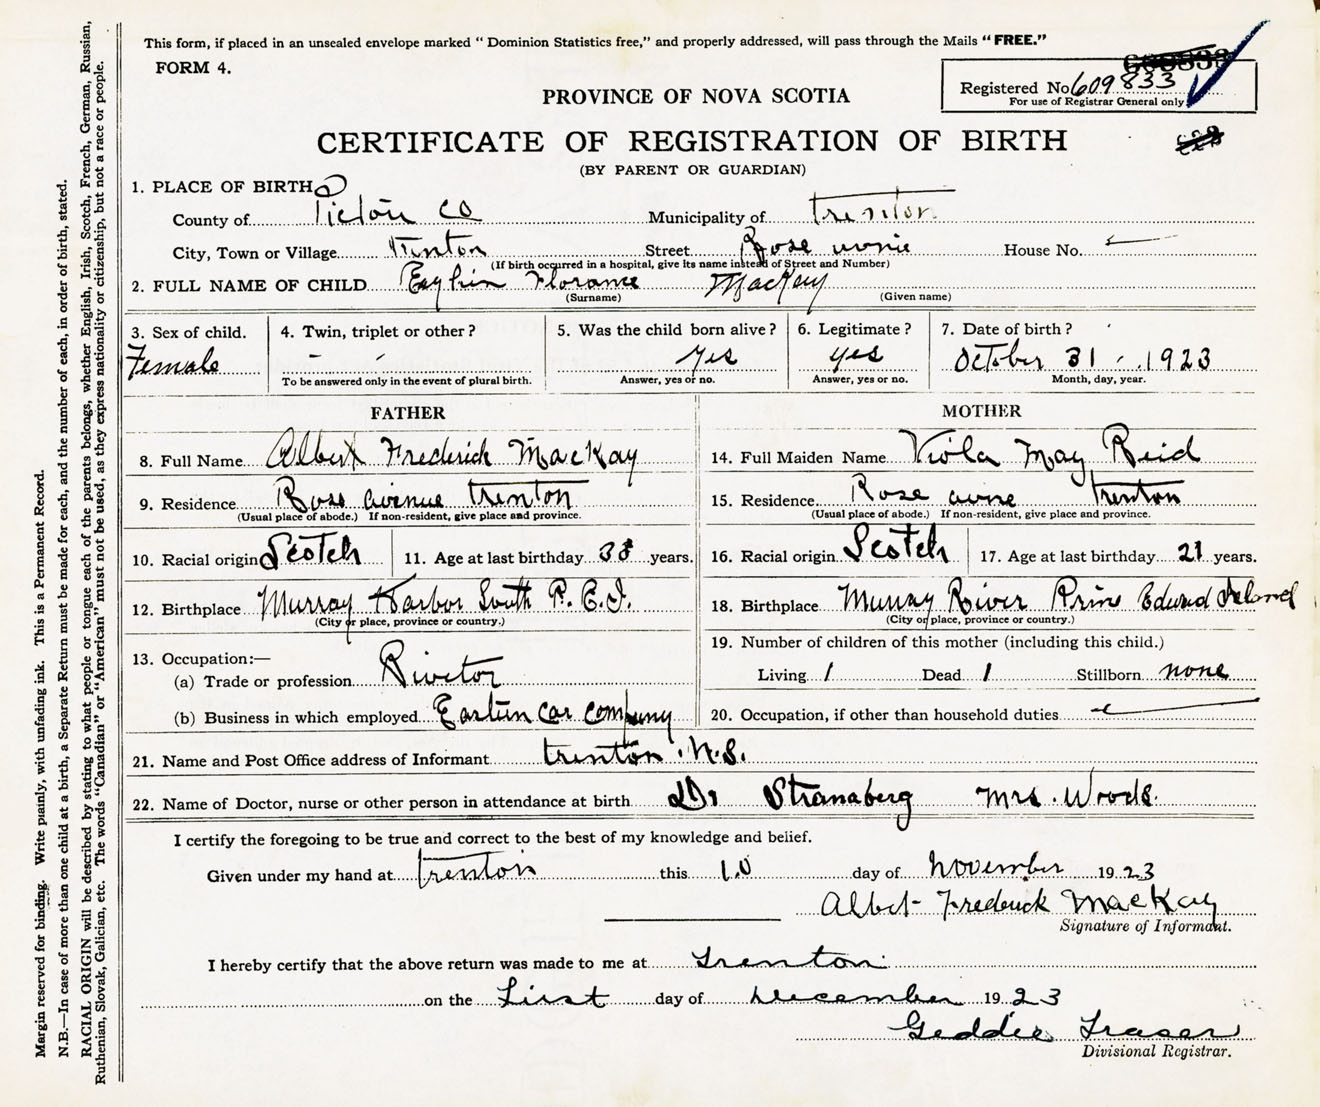 This form, if placed in an unsealed envelope marked “ Dominion Statistics free,” and properly addressed, will pass through the Mails “FREE.”
FORM 4.
Registered No 609833
For use of Registrar General only
PROVINCE OF NOVA SCOTIA
CERTIFICATE OF REGISTRATION OF BIRTH
(BY PARENT OR GUARDIAN)
1. PLACE OF BIRTH
County of Pictou Co Municipality of Trenton
City, Town or Village Trenton Street Rose House No.
(If birth occurred in a hospital, give its name instead of Street and Number)
2. FULL NAME OF CHILD MacKay
(Surname) (Given name)
3. Sex of child. 4. Twin, triplet or other? 5. Was the child born alive? 6. Legitimate? 7. Date of birth?
Female - - yes yes October 31 . 1923
To be answered only in the event of plural birth. Answer, yes or no. Answer, yes or no. Month, day, year.
FATHER MOTHER
8. Full Name Albert Frederick MacKay 14. Full Maiden Name Viola May Reid
9. Residence Rose avenue Trenton 15. Residence Rose Trenton
(Usual place of abode.) If non-resident, give place and province. (Usual place of abode.) If non-resident, give place and province.
10. Racial origin Scotch 11. Age at last birthday years. 16. Racial origin Scotch 17. Age at last birthday 21 years.
12. Birthplace Murray Harbor South P. E. I. 18. Birthplace Murray River Prins Edward Island
(City or place, province or country.) (City or place, province or country.)
13. Occupation:— 19. Number of children of this mother (including this child.)
(a) Trade or profession Rivetor Living 1 Dead 1 Stillborn none
(b) Business in which employed Eastern Car Company 20. Occupation, if other than household duties
21. Name and Post Office address of Informant trenton . N.S.
22. Name of Doctor, nurse or other person in attendance at birth Dr Stranaberg Mrs. Woods.
I certify the foregoing to be true and correct to the best of my knowledge and belief.
Given under my hand at trenton this 10 day of november 1923
Albert Frederick MacKay
Signature of Informant.
I hereby certify that the above return was made to me at Trenton
on the First day of December 1923
Geddie Fraser
Divisional Registrar.
Margin reserved for binding. Write plainly, with unfading ink. This is a Permanent Record.
N.B.—In case of more than one child at a birth, a Separate Return must be made for each, and the number of each, in order of birth, stated.
RACIAL ORIGIN will be described by stating to what people or tongue each of the parents belongs, whether English, Irish, Scotch, French, German, Russian,
Ruthenian, Slovak, Galician, etc. The words “Canadian” or “American” must not be used, as they express nationality or citizenship, but not a race or people.